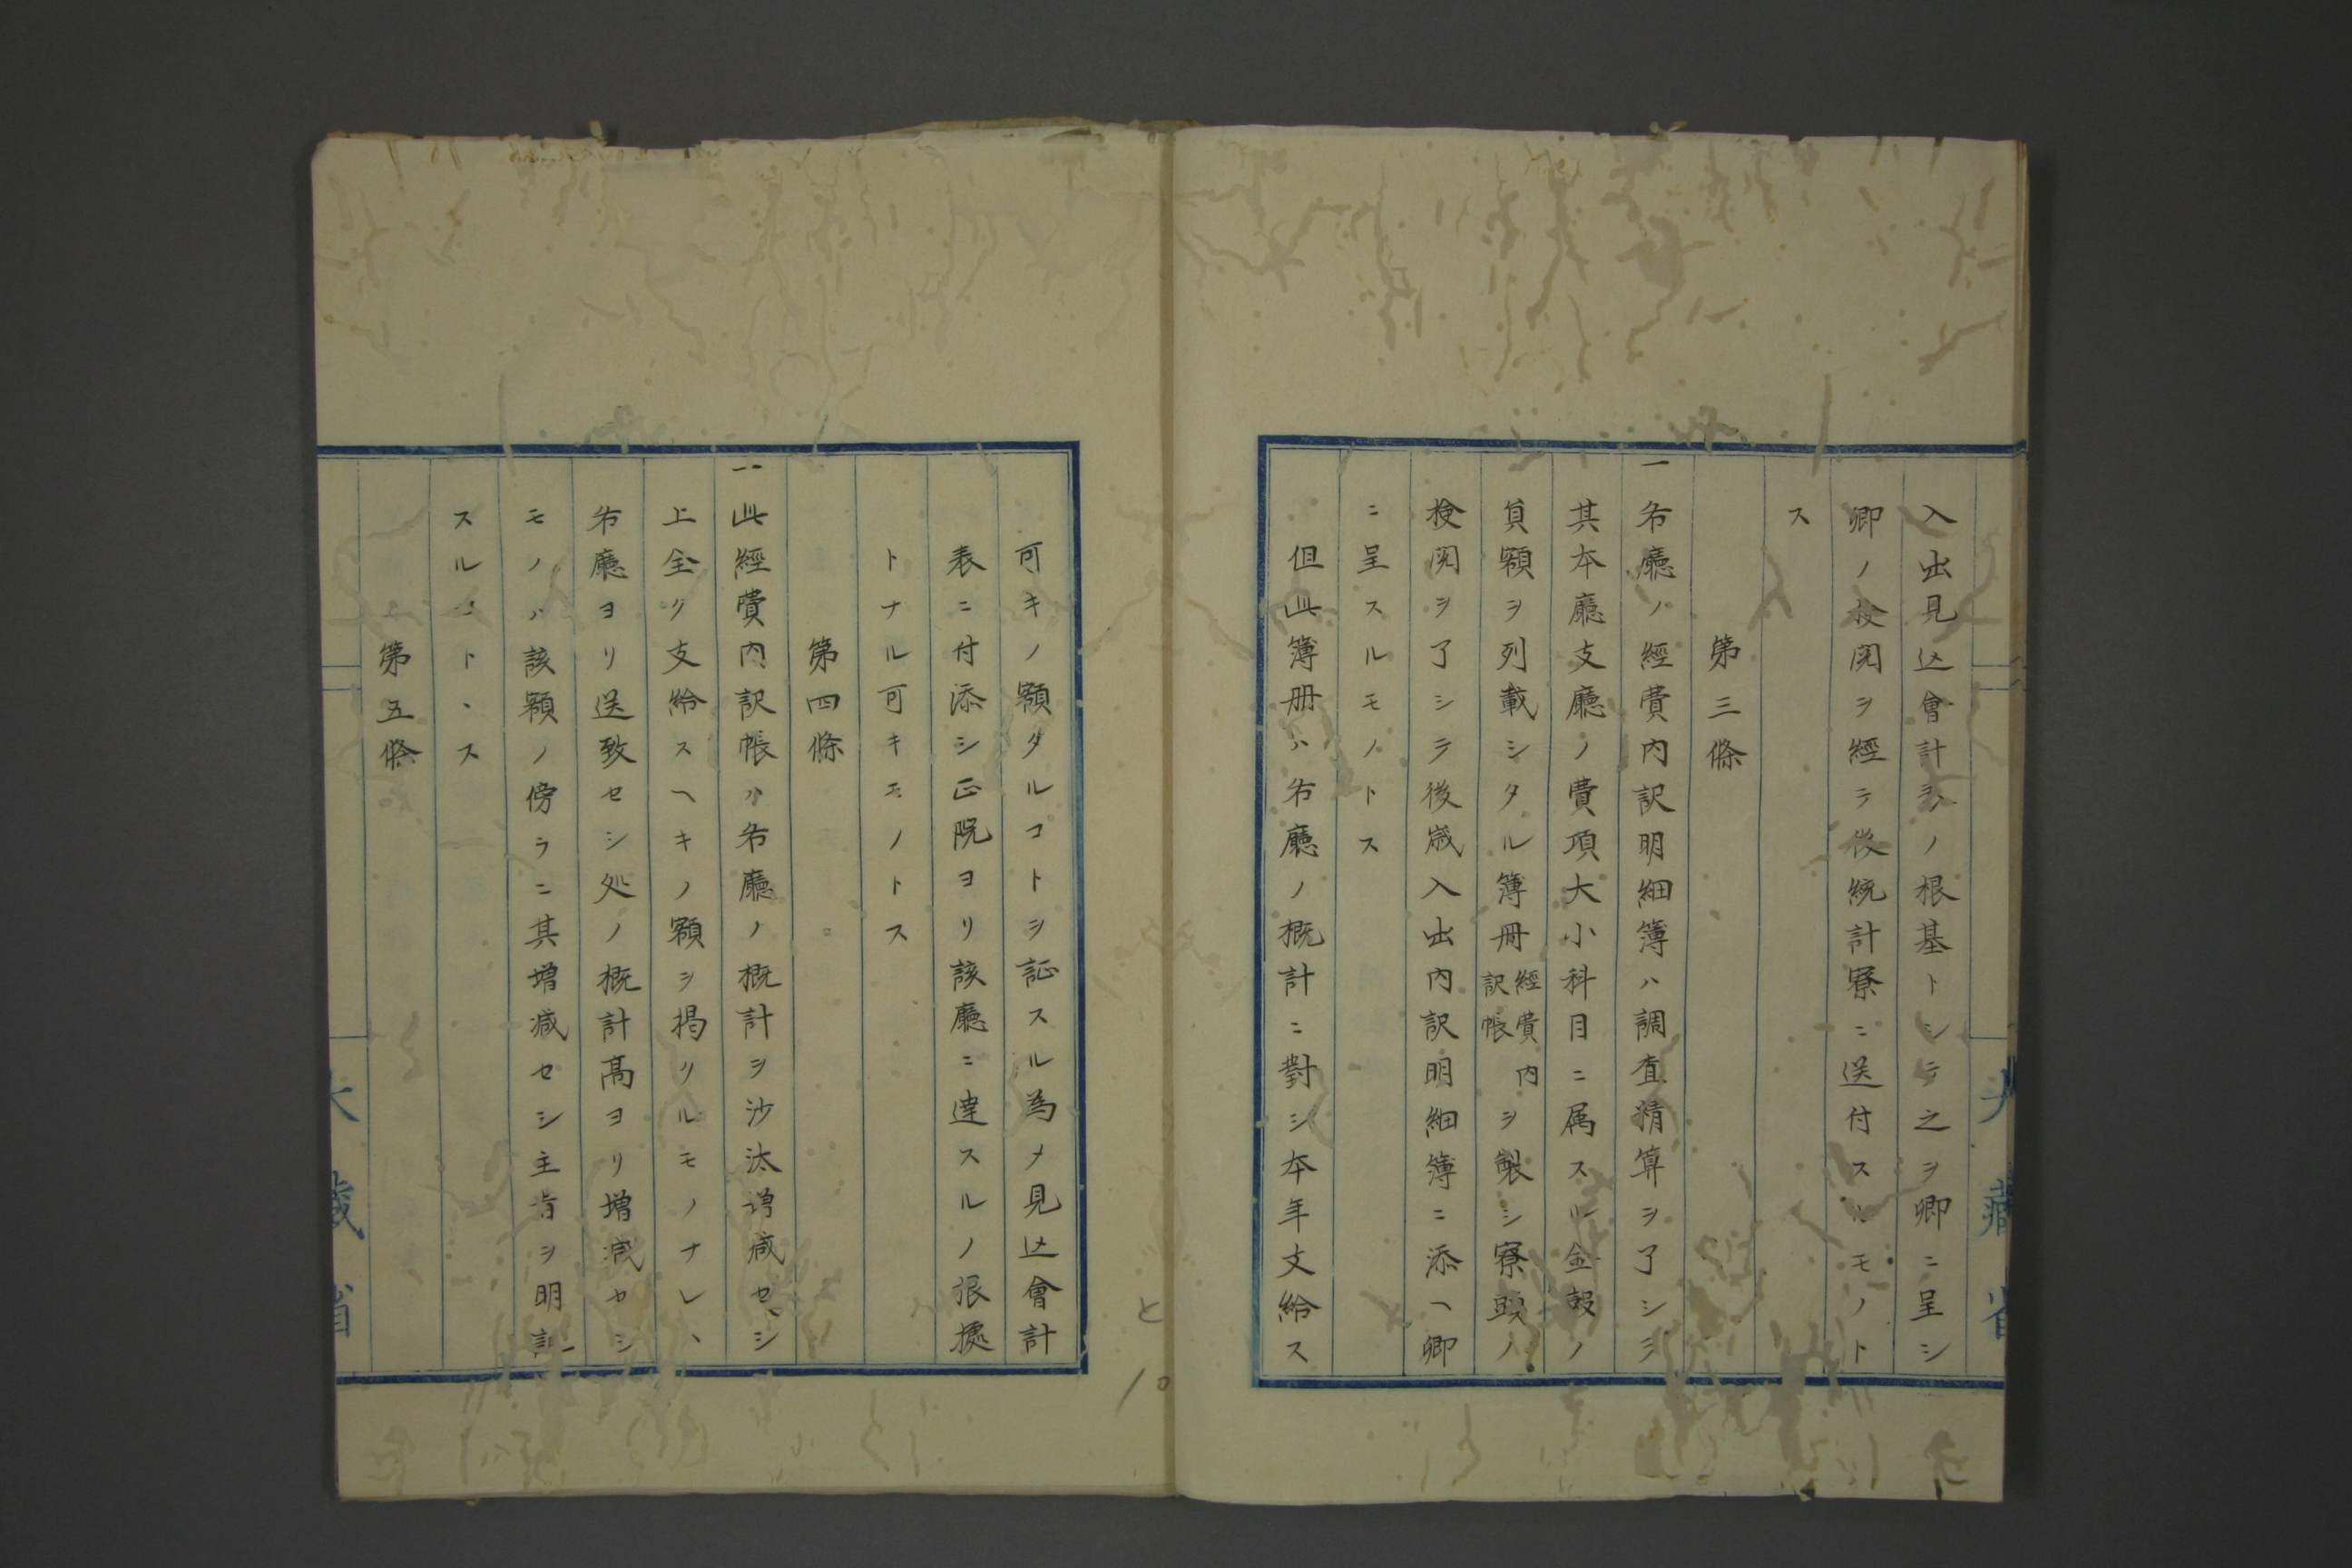 入出見込會計表ノ根基トシテ之ヲ卿ニ呈シ
卿ノ検閲ヲ經テ後統計寮ニ送付スルモノト
ス
第三條
一各廳ノ經費内訳明細簿ハ調査精算ヲ了シ
其本廳支廳ノ費項大小科目ニ属スル金穀ノ
負額ヲ列載シタル簿冊經費内訳帳ヲ製シ寮頭ノ
検閲ヲ了シテ後歳入出内訳明細簿ニ添ヘ卿
ニ呈スルモノトス
但此簿冊ハ各廳ノ概計ニ對シ本年支給ス
可キノ額タルコトヲ証スル為メ見込會計
表ニ付添シ正院ヨリ該廳ニ達スルノ根據
トナル可キモノトス
第四條
一此經費内訳帳ハ各廳ノ概計ヲ沙汰増減セシ
上全ク支給スヘキノ額ヲ掲クルモノナレハ
各廳ヨリ送致セシ処ノ概計高ヨリ増減セシ
モノハ該額ノ傍ラニ其増減セシ主旨ヲ明記
スルコトヽス
第五條
大藏省
大藏省
と
10